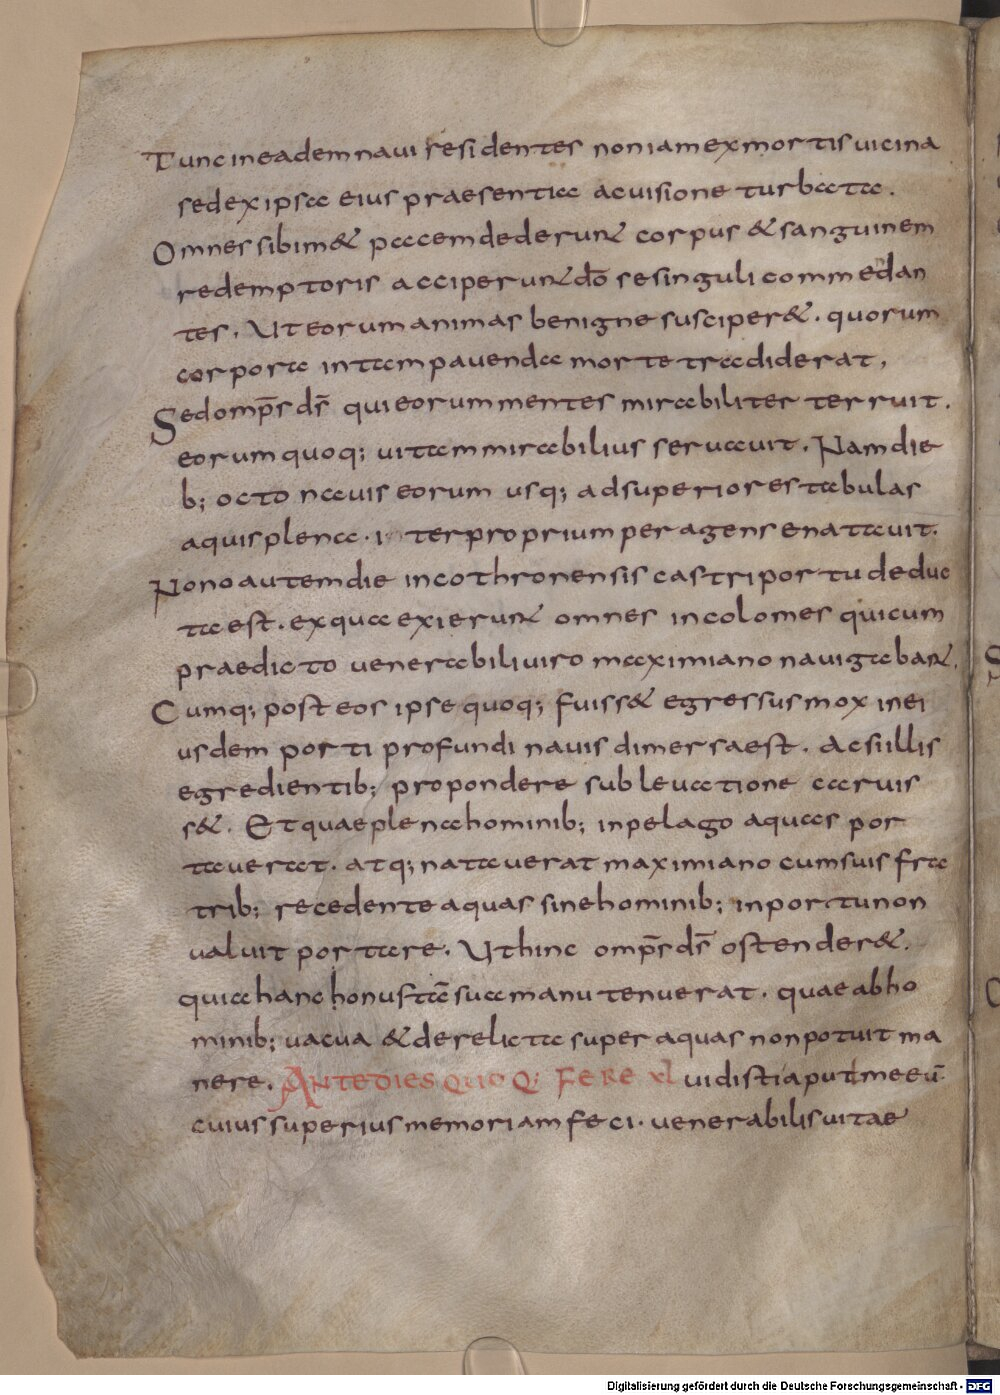 Tunc ineadem naui residentes non iam ex mortis uicina
sed ex ipsa eius praesentia ac uisione turbatae.
Omnes sibim& pacem dederun& corpus & sanguinem
redemptoris acciperun& dō se singuli commedan
tes. Ut eorum animas benigne susciper&. quorum
corpora in tam pauenda morte tradiderat,
Sed omp̄s ds̄ qui eorum mentes mirabiliter terruit.
eorum quoq; uitam mirabilius seruauit. Nam die
b; octo nauis eorum usq; ad superiores tabulas
aquis plena. iter proprium peragens enatauit.
Nono autem die in cothronensis castri portu deduc
ta est. ex qua exierun& omnes incolomes qui cum
praedicto uenerabili uiro maximiano nauigaban&.
Cumq; post eos ipse quoq; fuiss& egressus mox in ei
usdem porti profundi nauis dimersa est. Ac si illis
egredientib; pro pondere subleuatione caruis
s&. Et quae plena hominib; in pelago aquas por
tauerat. atq; natauerat maximiano cum suis fra
trib; recedente aquas sine hominib; in portu non
ualuit portare. Ut hinc omp̄s ds̄ ostender&.
quia hanc honustā sua manu tenuerat. quae ab ho
minib; uacua & derelicta super aquas non potuit ma
nere. ANTE DIES QUOQ; FERE xl uidisti aput me eū
cuius superius memoriam feci. uenerabilis uitae
Digitalisierung gefördert durch die Deutsche Forschungsgemeinschaft - DFG